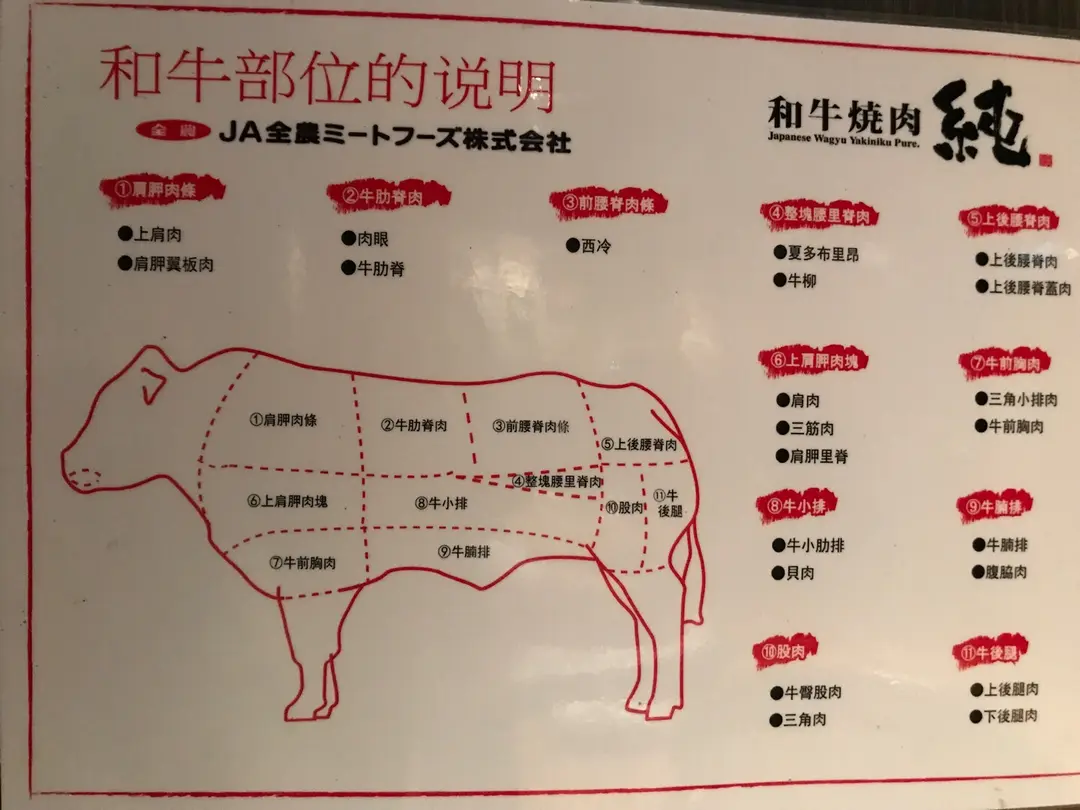 和牛部位的说明
全農 JA全農ミートフーズ株式会社
和牛燒肉 純
Japanese Wagyu Yakiniku Pure.
①肩胛肉條
●上肩肉
●肩胛翼板肉
②牛肋脊肉
●肉眼
●牛肋脊
③前腰脊肉條
●西冷
④整塊腰里脊肉
●夏多布里昂
●牛柳
⑤上後腰脊肉
●上後腰脊肉
●上後腰脊蓋肉
⑥上肩胛肉塊
●肩肉
●三筋肉
●肩胛里脊
⑦牛前胸肉
●三角小排肉
●牛前胸肉
⑧牛小排
●牛小肋排
●貝肉
⑨牛腩排
●牛腩排
●腹脇肉
⑩股肉
●牛臀股肉
●三角肉
⑪牛後腿
●上後腿肉
●下後腿肉
①肩胛肉條
②牛肋脊肉
③前腰脊肉條
⑤上後腰脊肉
④整塊腰里脊肉
⑥上肩胛肉塊
⑧牛小排
⑩股肉
⑪牛
後腿
⑦牛前胸肉
⑨牛腩排